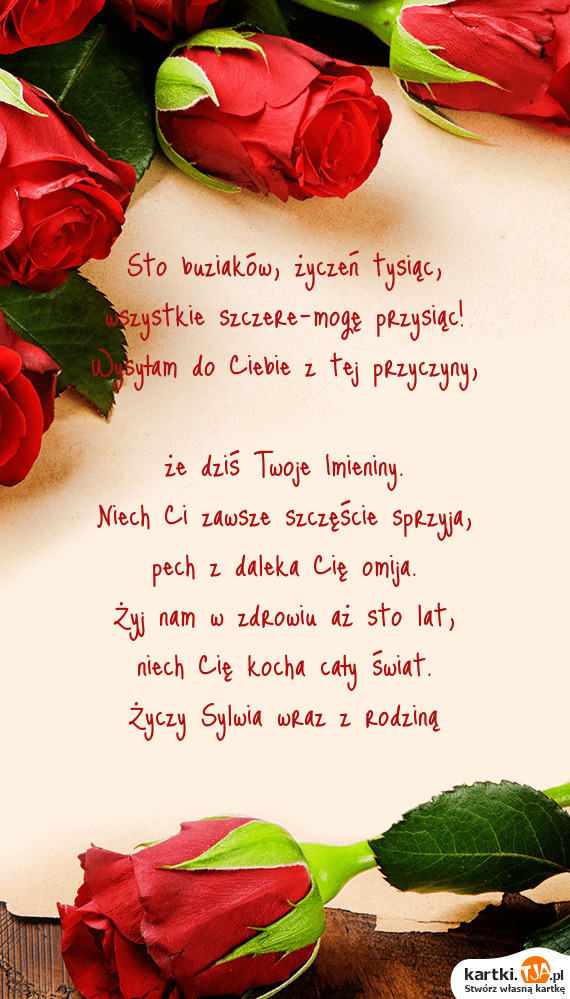 Sto buziaków, życzeń tysiąc,
wszystkie szczere-mogę przysiąc!
Wysyłam do Ciebie z tej przyczyny,
że dziś Twoje Imieniny.
Niech Ci zawsze szczęście sprzyja,
pech z daleka Cię omija.
Żyj nam w zdrowiu aż sto lat,
niech Cię kocha cały świat.
Życzy Sylwia wraz z rodziną
kartki.TJA.pl
Stwórz własną kartkę